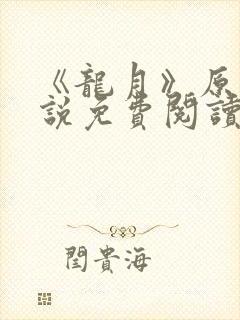 《龍月》原
說免費閱讀
閆貴海